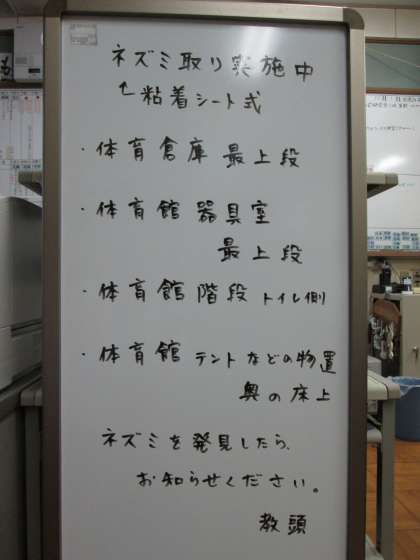 ネズミ取り実施中
↳粘着シート式
・体育倉庫 最上段
・体育館 器具室
最上段
・体育館 階段 トイレ側
・体育館 テントなどの物置
奥の床上
ネズミを発見したら、
お知らせください。
教頭